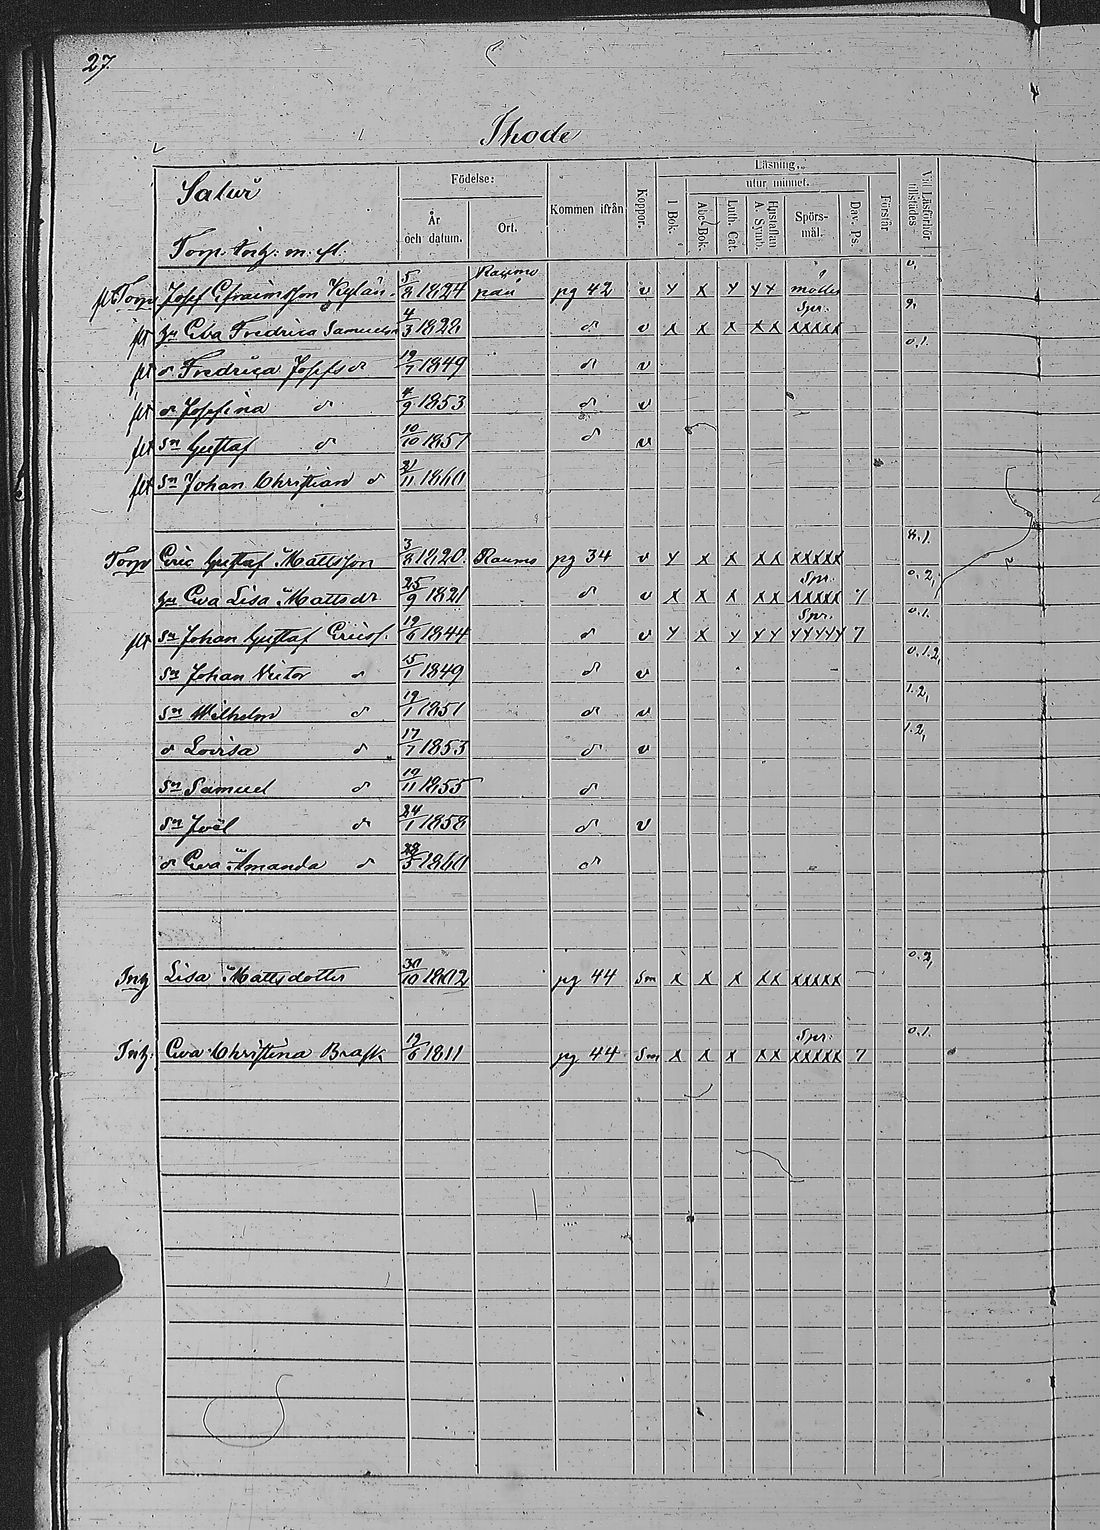 27.
Thode
Salur
Torp. Inh: m: fl.
Födelse:
År och datum.
Ort.
Kommen ifrån
Koppor.
Läsning.
utur minnet.
I Bok.
Abc-Bok.
Luth. Cat.
Hustaflan A. Symb.
Spörs-mål.
Dav. Ps.
Förstår
Vid Läsförhör tillstädes
flt Torp Josef Efraimsson Kylän. 5/8 1824 Raumo pg 42 v y x y yy
flt hu Eva Fredrica Samuelsr 4/3 1828 d v x x x xx Spr. xxxxx
flt d Fredrica Josefsdr 19/7 1849 d v 0.1.
flt dr Josefina d 4/9 1853 d v
flt sn Gustaf d 10/10 1857 d v
flt sn Johan Christian d 21/11 1860
Torp Eric Gustaf Mattsson 3/8 1820. Raumo pg 34 v y x x xx xxxxx
hu Eva Lisa Mattsdr 25/9 1821 d v x x x xx Spr. xxxxx 7 0.2,
flt sn Johan Gustaf Ericss. 19/6 1844 d v y x y yy Spr. yyyyy 7 0.1.
sn Johan Victor d 15/1 1849 d v 0.1.2,
sn Wilhelm d 19/1 1851 d v 1.2,
d Lovisa d 17/7 1853 d v 1.2,
sn Samuel d 19/11 1855 d
sn Joël d 24/1 1858 d v
d Eva Amanda d 28/5 1860 d
Inh Lisa Mattsdotter 30/10 1802 pg 44 Sm x x x xx xxxxx 0.2,
Inh. Eva Christina Brask 19/6 1811 pg 44 Sm x x x xx Spr. xxxxx 7 0.1.